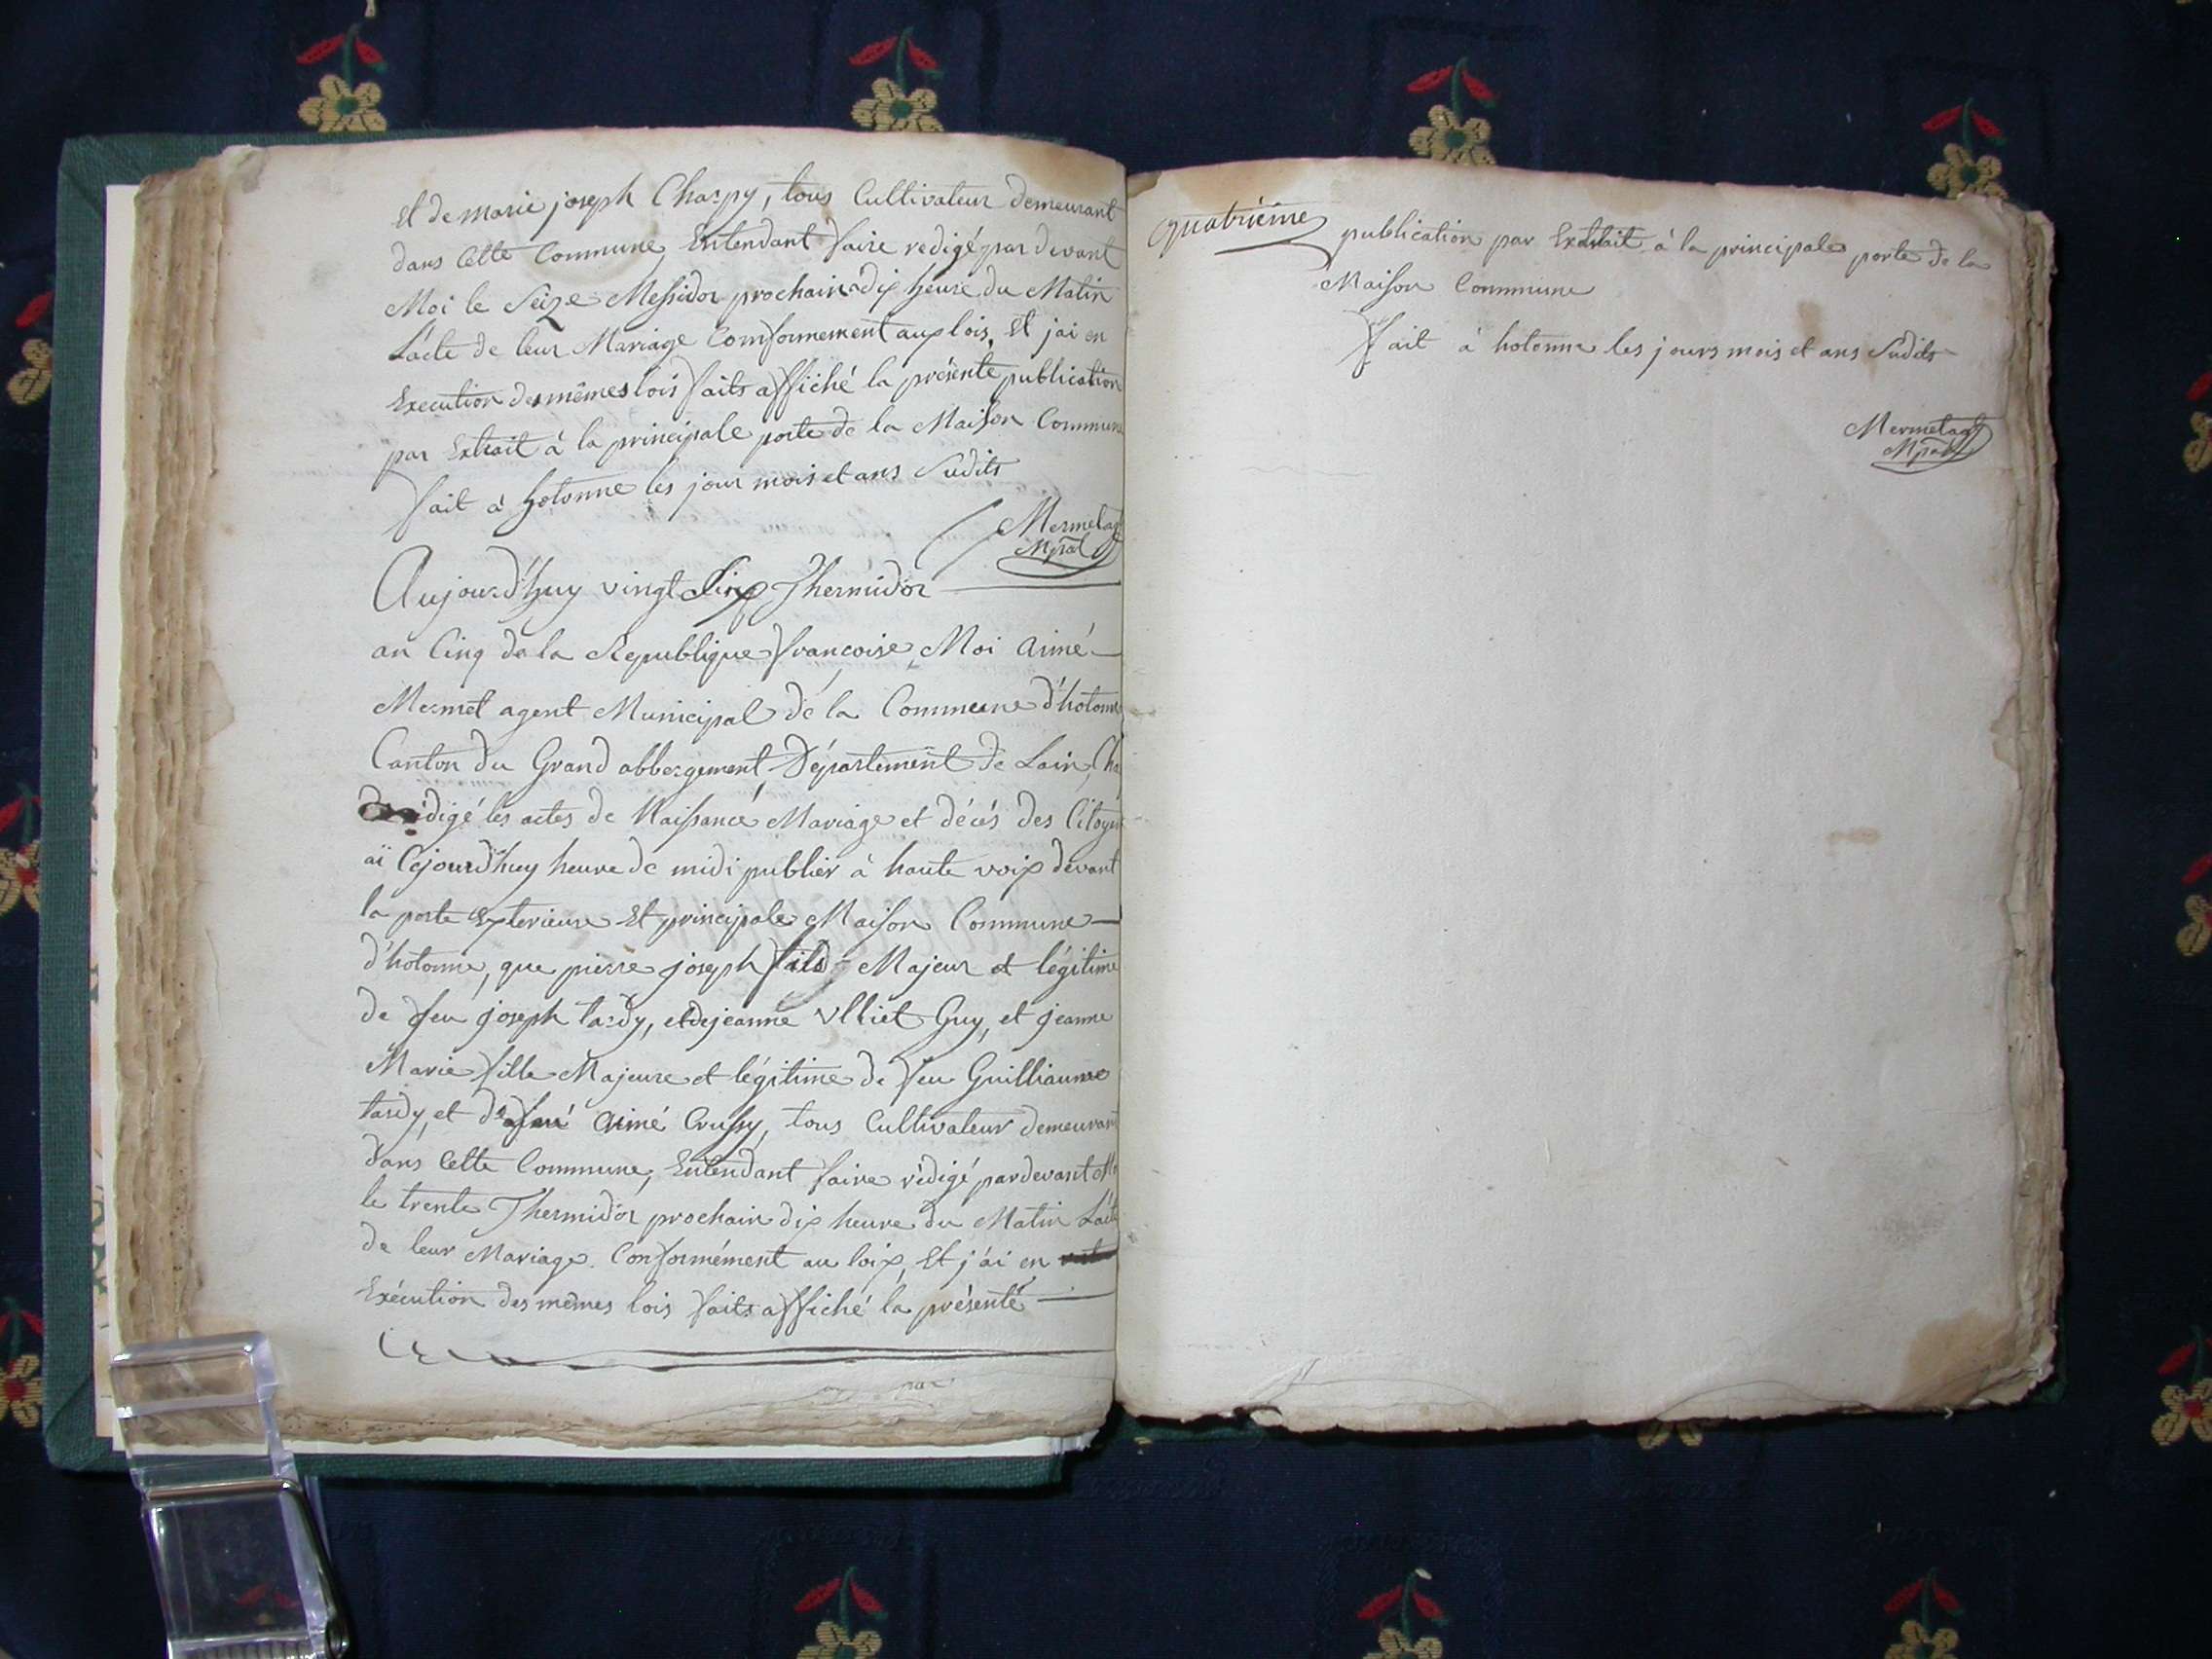 et de marie joseph Charpy, tous Cultivateur demeurant
dans Cette Commune, Entendant faire redigé par devant
Moi le Seize Messidor prochain dix heure du Matin
L'acte de leur Mariage Comformement aux lois, Et jai en
Execution des mêmes lois faits affiché la présente publication
par Extrait à la principale porte de la Maison Commune
fait à hotonne les jour mois et ans Sudits
Mermet ag
Mpal
Aujourd'huy vingt Thermidor
an Cinq de la Republique francoise, Moi aimé
Mermet agent Municipal de la Commune d'hotonne
Canton du Grand abbergement, Département de Lain, Cha
rédigé les actes de Naissance, Mariage et décés des Citoyen
ai Cejourd'huy heure de midi publier à haute voix devant
la porte Exterieure Et principale Maison Commune
d'hotonne, que pierre joseph fils Majeur et légitime
de feu joseph tardy, et de jeanne Ulliet Guy, et jeanne
Marie fille Majeure et légitime de feu Guilliaume
tardy, et de aimé Crussy, tous Cultivateur demeurant
dans Cette Commune, Entendant faire rédigé pardevant Moi
le trente Thermidor prochain dix heure du Matin L'acte
de leur Mariage. Conformément au loix, Et j'ai en
Exécution des mêmes lois faits affiché la présente
par
quatriéme
publication par Extrait à la principale porte de la
Maison Commmune
fait à hotonne les jours mois et ans Sudits
Mermet ag
Mpal